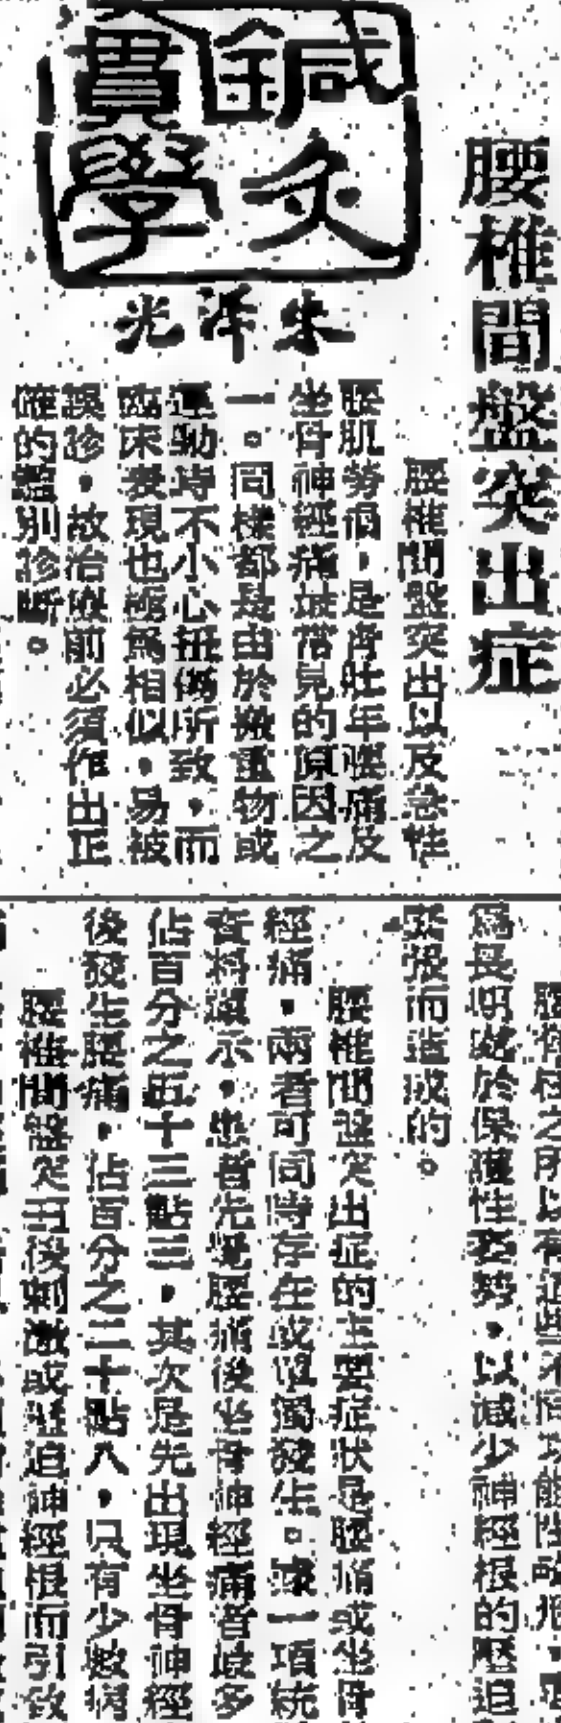 腰椎間盤突出症
鍼灸
實學
朱澤光
腰椎間盤突出以及急性
腰肌勞損,是青壯年腰痛及
坐骨神經痛最常見的原因之
一。同樣都是由於搬重物或
運動時不小心扭傷所致,而
臨床表現也極為相似,易被
誤診,故治療前必須作出正
確的鑑別診斷。
腰脊柱之所以有這些不同功能性改形,
為長期處於保護性姿勢,以減少神經根的壓迫
緊張而造成的。
腰椎間盤突出症的主要症狀是腰痛或坐骨
經痛,兩者可同時存在或單獨發生。據一項統
資料顯示,患者先覺腰痛後坐骨神經痛者最多
佔百分之五十三點三,其次是先出現坐骨神經
後發生腰痛,佔百分之二十點八,只有少數病
腰椎間盤突出後刺激或壓迫神經根而引致